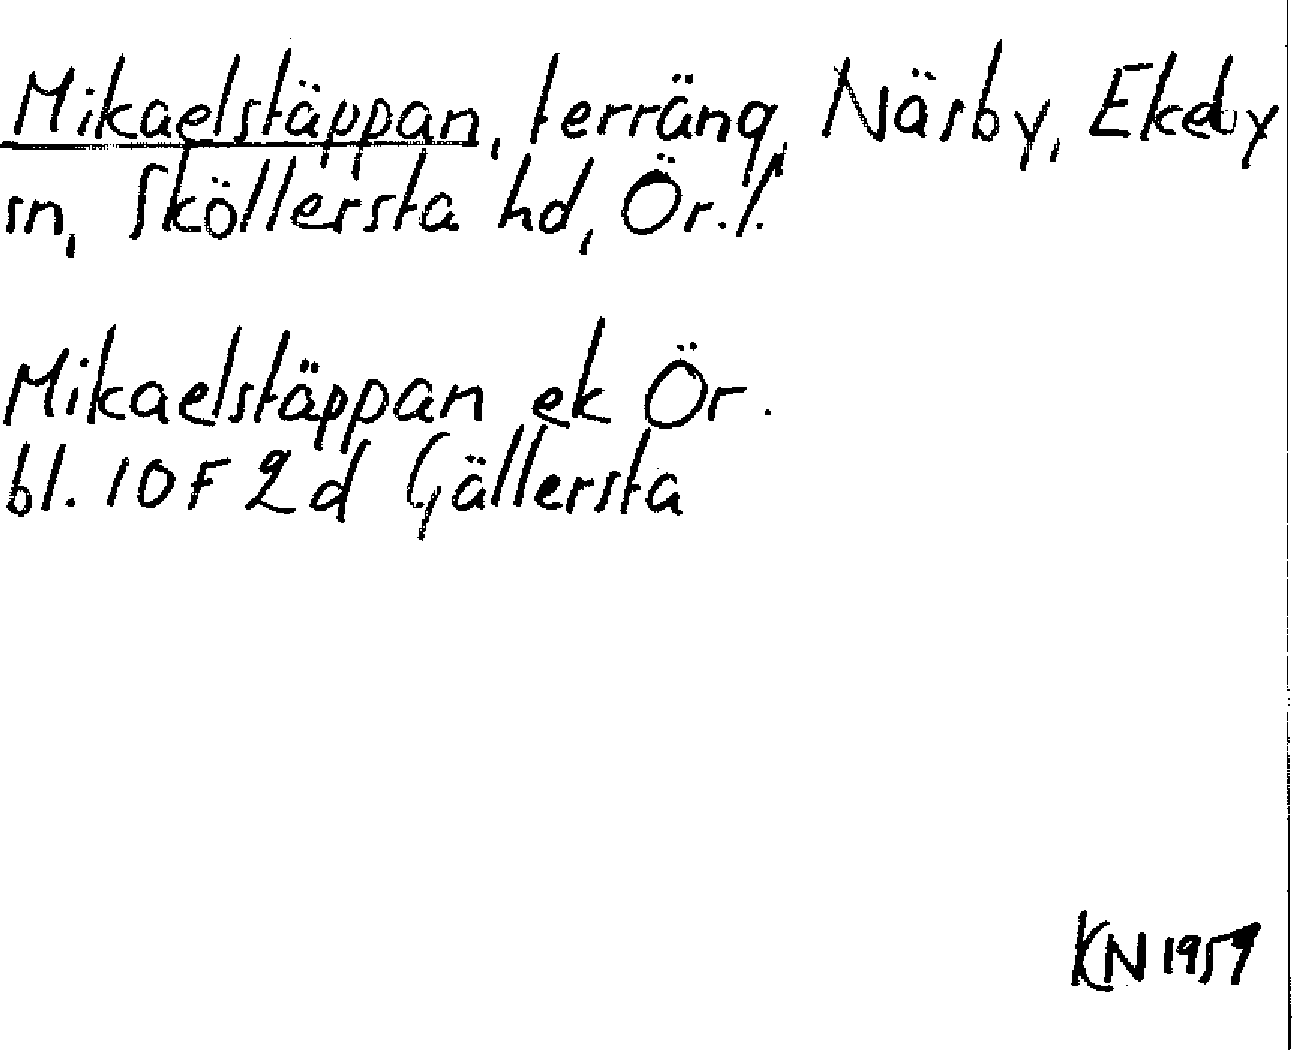 Mikaelstäppan, terräng, Näsby, Ekeby
sn, Sköllersta hd, Ör. l.
Mikaelstäppan ek Ör.
bl. 10F 2d Gällersta
KN 1959